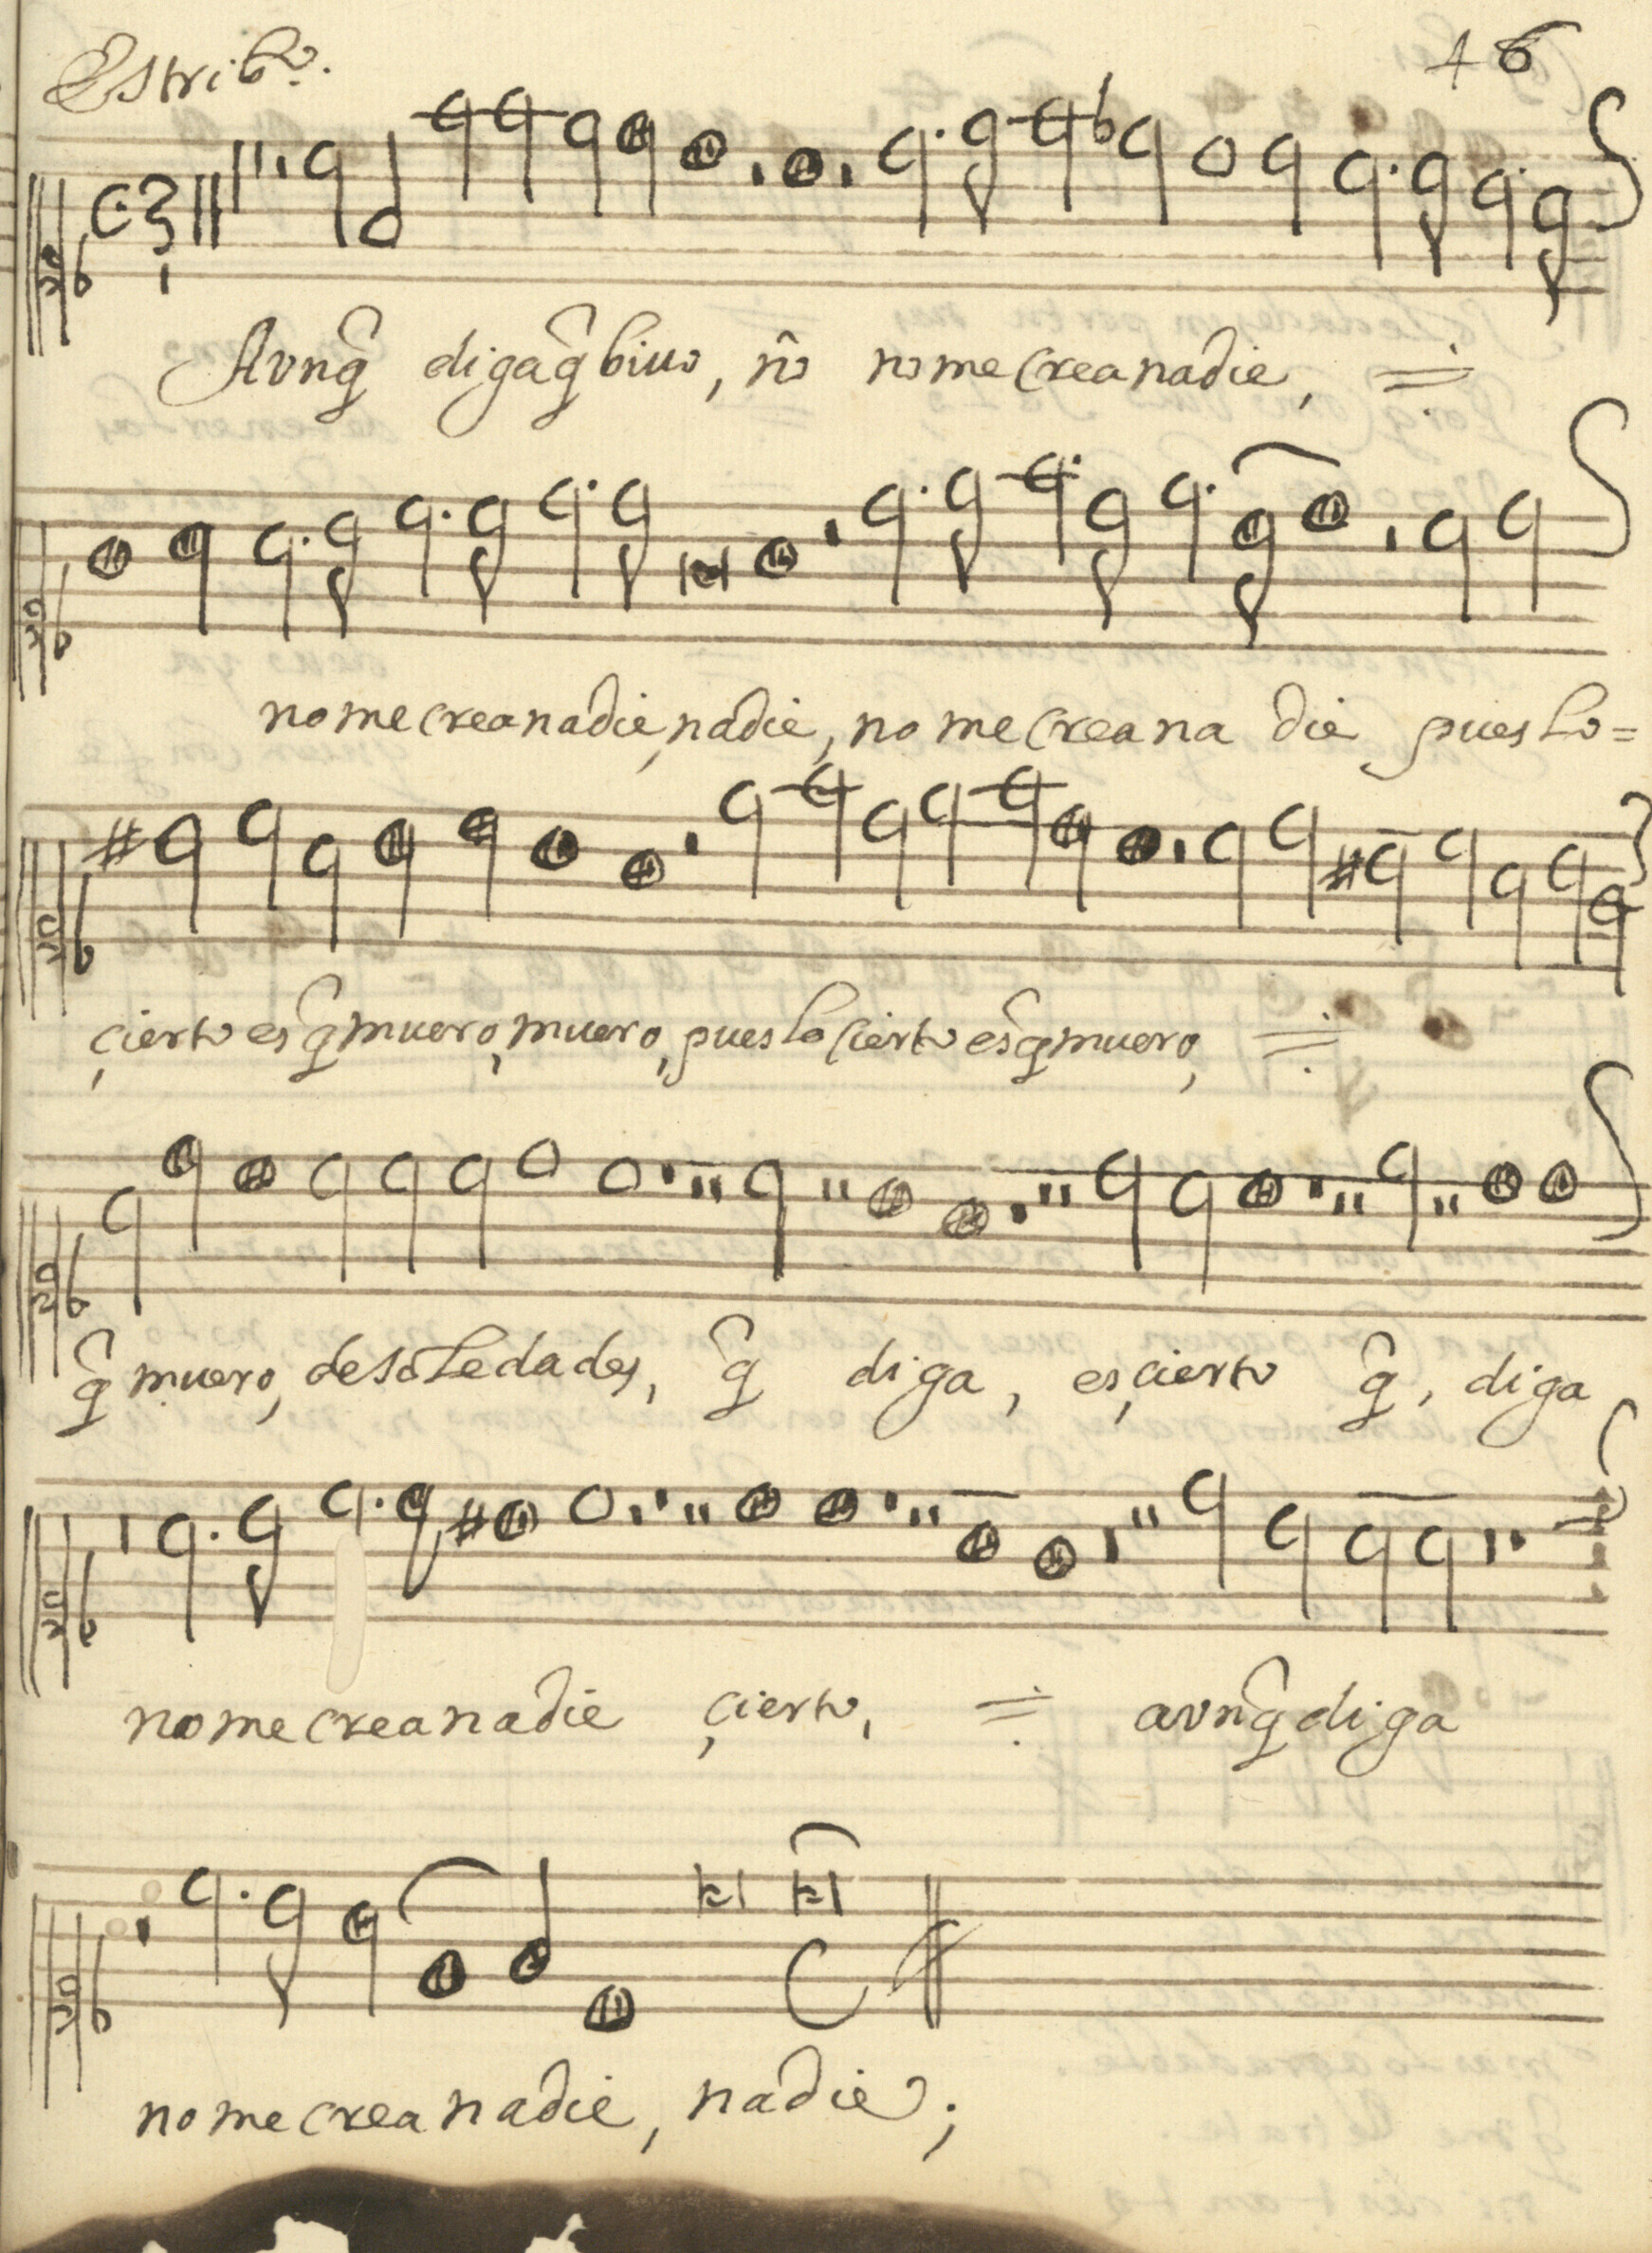 Estribo. 46
Aunq̃ diga q̃ biuo, no no me crea nadie,
no me crea nadie, nadie, no me crea na die pues lo=
çierto es q̃ muero, muero, pues lo cierto es q̃ muero,
q̃ muero, de soledades, q̃ diga, es, çierto q̃, diga
no me crea nadie çierto, aunq̃ diga
no me crea nadie, nadie;